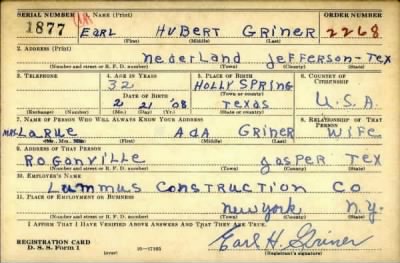 SERIAL NUMBER 1. NAME (Print) ORDER NUMBER
1877 EARL HUBERT GRINER 2268
(First) (Middle) (Last)
2. ADDRESS (Print)
Nederland Jefferson-Tex
(Number and street or R. F. D. number) (Town) (County) (State)
3. TELEPHONE 4. AGE IN YEARS 5. PLACE OF BIRTH 6. COUNTRY OF CITIZENSHIP
32 HOLLY SPRING
DATE OF BIRTH (Town or county)
2 21 '08 Texas U.S.A.
(Exchange) (Number) (Mo.) (Day) (Yr.) (State or country)
7. NAME OF PERSON WHO WILL ALWAYS KNOW YOUR ADDRESS 8. RELATIONSHIP OF THAT PERSON
MRS LaRue Ada Griner Wife
(Mr., Mrs., Miss) (First) (Middle) (Last)
9. ADDRESS OF THAT PERSON
Roganville Jasper Tex
(Number and street or R. F. D. number) (Town) (County) (State)
10. EMPLOYER'S NAME
Lummus Construction Co
11. PLACE OF EMPLOYMENT OR BUSINESS
New York N.Y.
(Number and street or R. F. D. number) (Town) (County) (State)
I AFFIRM THAT I HAVE VERIFIED ABOVE ANSWERS AND THAT THEY ARE TRUE.
REGISTRATION CARD
D. S. S. Form 1 16—17105 Earl H. Griner
(Registrant's signature)